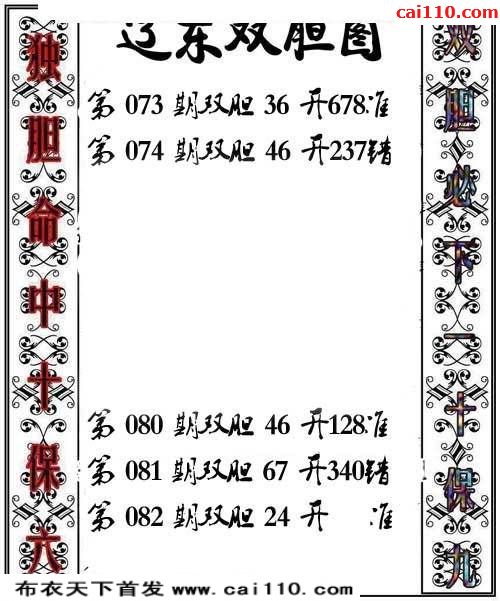 cai110.com
辽东双胆图
独胆命中十保六
第 073 期双胆 36 开678准
第 074 期双胆 46 开237错
第 080 期双胆 46 开128准
第 081 期双胆 67 开340错
第 082 期双胆 24 开 准
双胆必下一十保九
布衣天下首发 www.cai110.com